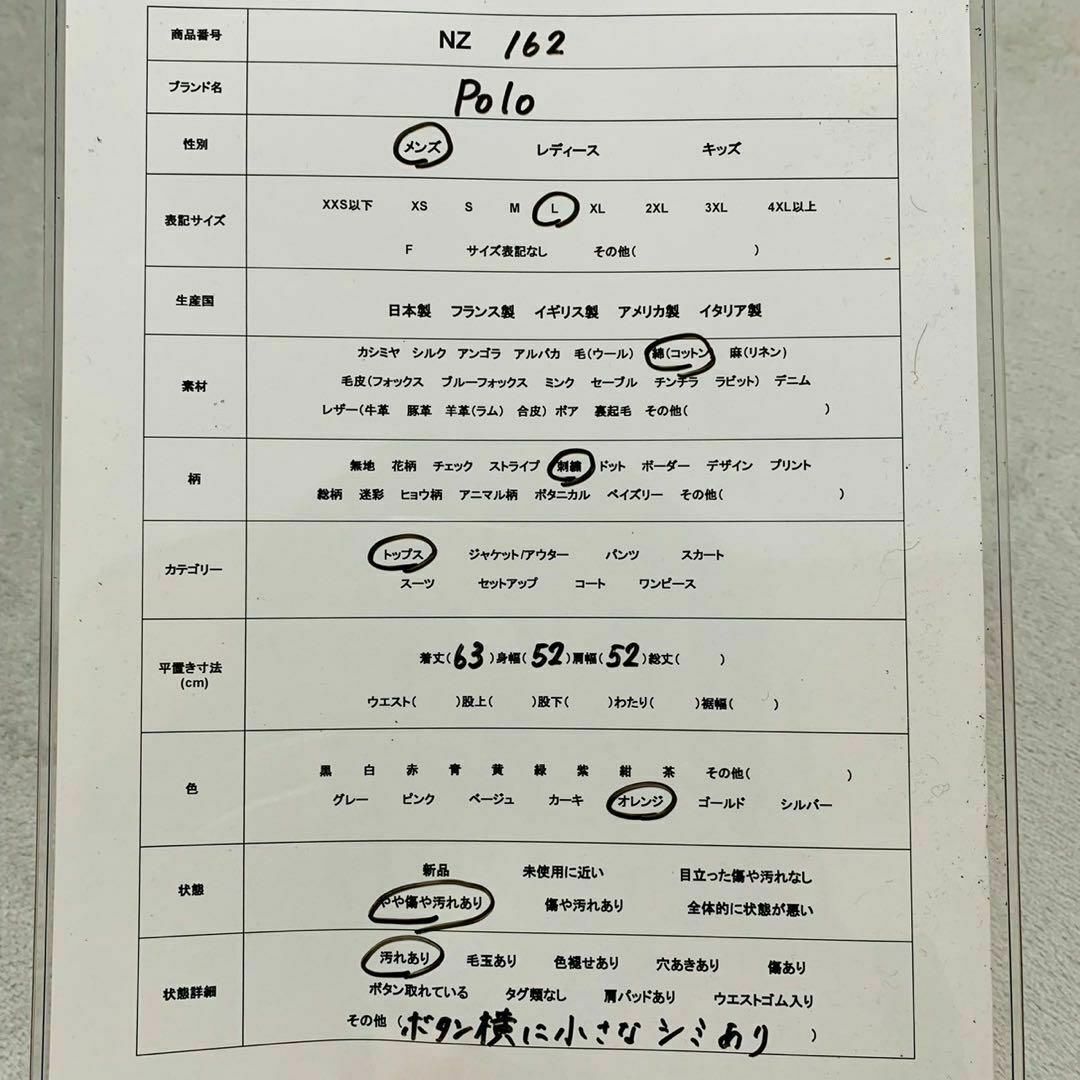 商品番号 NZ 162
ブランド名 Polo
性別 メンズ レディース キッズ
表記サイズ XXS以下 XS S M L XL 2XL 3XL 4XL以上
F サイズ表記なし その他( )
生産国 日本製 フランス製 イギリス製 アメリカ製 イタリア製
素材 カシミヤ シルク アンゴラ アルパカ 毛(ウール) 綿(コットン) 麻(リネン)
毛皮(フォックス ブルーフォックス ミンク セーブル チンチラ ラビット) デニム
レザー(牛革 豚革 羊革(ラム) 合皮) ボア 裏起毛 その他( )
柄 無地 花柄 チェック ストライプ 刺繍 ドット ボーダー デザイン プリント
総柄 迷彩 ヒョウ柄 アニマル柄 ボタニカル ペイズリー その他( )
カテゴリー トップス ジャケット/アウター パンツ スカート
スーツ セットアップ コート ワンピース
平置き寸法 (cm) 着丈(63)身幅(52)肩幅(52)総丈( )
ウエスト( )股上( )股下( )わたり( )裾幅( )
色 黒 白 赤 青 黄 緑 紫 紺 茶 その他( )
グレー ピンク ベージュ カーキ オレンジ ゴールド シルバー
状態 新品 未使用に近い 目立った傷や汚れなし
やや傷や汚れあり 傷や汚れあり 全体的に状態が悪い
状態詳細 汚れあり 毛玉あり 色褪せあり 穴あきあり 傷あり
ボタン取れている タグ類なし 肩パッドあり ウエストゴム入り
その他 (ボタン横に小さなシミあり)